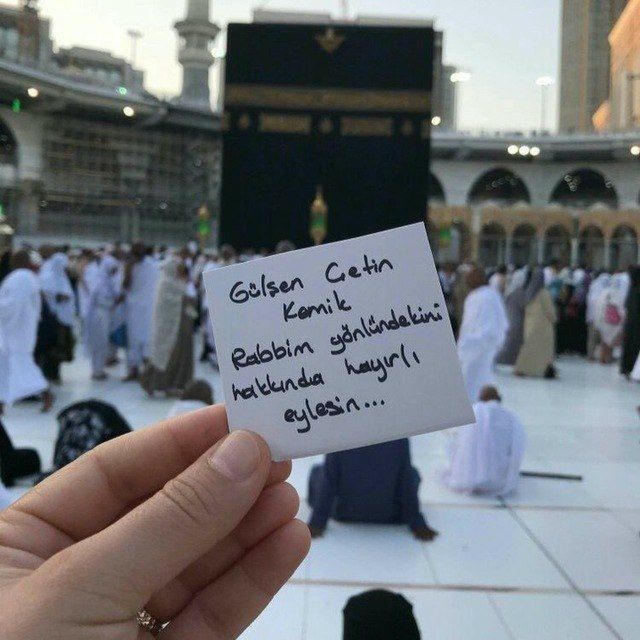 Gülşen Çetin
Kemik
Rabbim gönlündekini
hakkında hayırlı
eylesin...